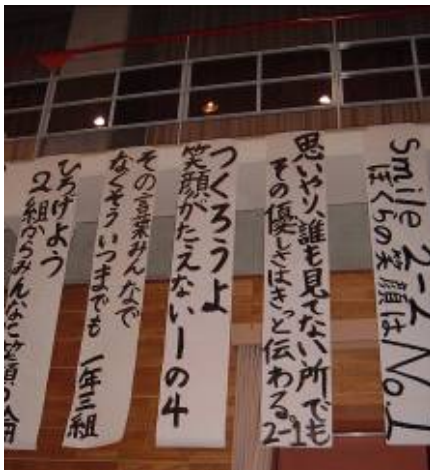 Smile 2-2 No.1
ぼくらの笑顔は
思いやり、誰も見てない所でも
その優しさはきっと伝わる。2-1
つくろうよ
笑顔がたえない一の4
その言葉みんなで
なくそういつまでも 一年三組
ひろげよう
2組からみんなに笑顔の輪